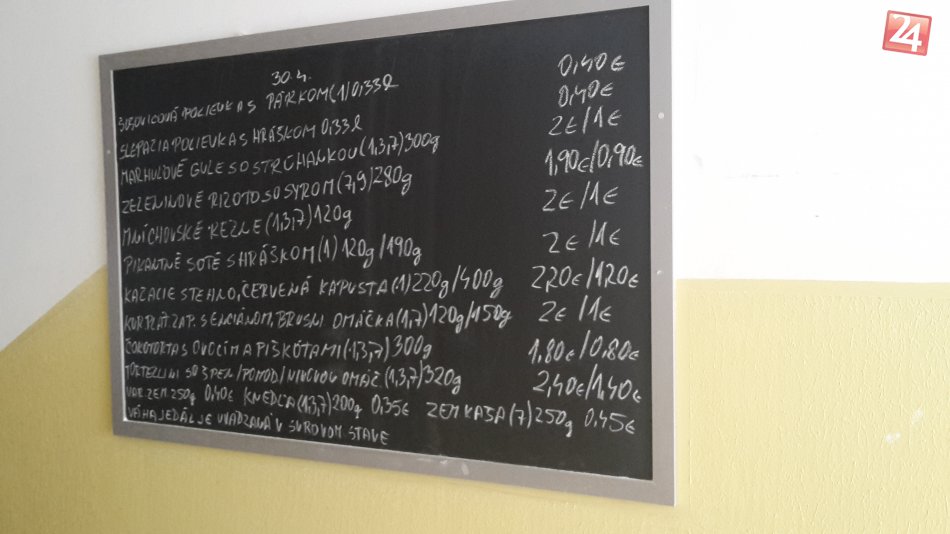 24
30.4.
ŠOŠOVICOVÁ POLIEVKA S PÁRKOM (1) 0,33l 0,40€
SLEPAČIA POLIEVKA S HRÁŠKOM 0,33l 0,40€
MARHUĽOVÉ GULE SO STRÚHANKOU (1,3,7) 300g 2€/1€
ZELENINOVÉ RIZOTO SO SYROM (7,9) 280g 1,90€/0,90€
MNÍCHOVSKÉ REZNE (1,3,7) 120g 2€/1€
PIKANTNÉ SOTÉ S HRÁŠKOM (1) 120g/190g 2€/1€
KAČACIE STEHNO, ČERVENÁ KAPUSTA (1) 220g/400g 2,20€/1,20€
KUR. PLÁT. ZAP. S ENCIÁNOM, BRUSNI OMÁČKA (1,7) 120g/150g 2€/1€
ČOKOTORTA S OVOCÍM A PIŠKÓTAMI (1,3,7) 300g 1,80€/0,80€
TORTELLINI SO ŠPEN/POHOD/NIVOVOU OMÁČ. (1,3,7) 320g 2,40€/1,40€
VAR. ZEM 250g 0,40€ KNEDĽA (1,3,7) 200g 0,35€ ZEM KAŠA (7) 250g 0,45€
VÁHA JEDÁL JE UVÁDZANÁ V SUROVOM STAVE